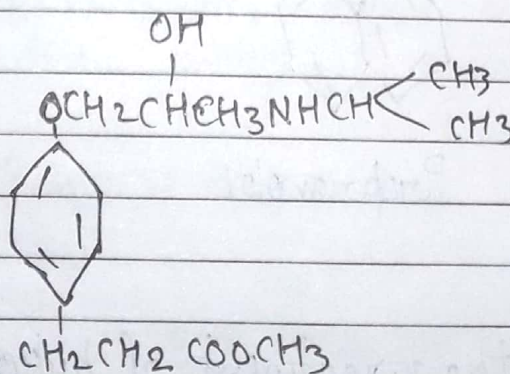 OH
OCH2CHCH3NHCH
CH3
CH3
CH2CH2 COO.CH3